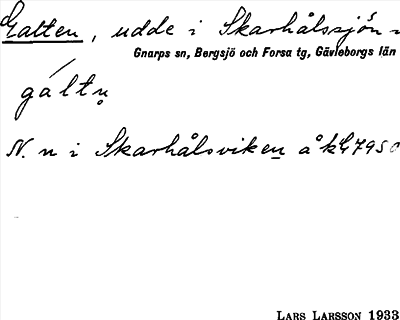 Galten, udde i Skarhålssjön
Gnarps sn, Bergsjö och Forsa tg, Gävleborgs län
gáltn̥
N. n i Skarhålsviken å k
LARS LARSSON 1933